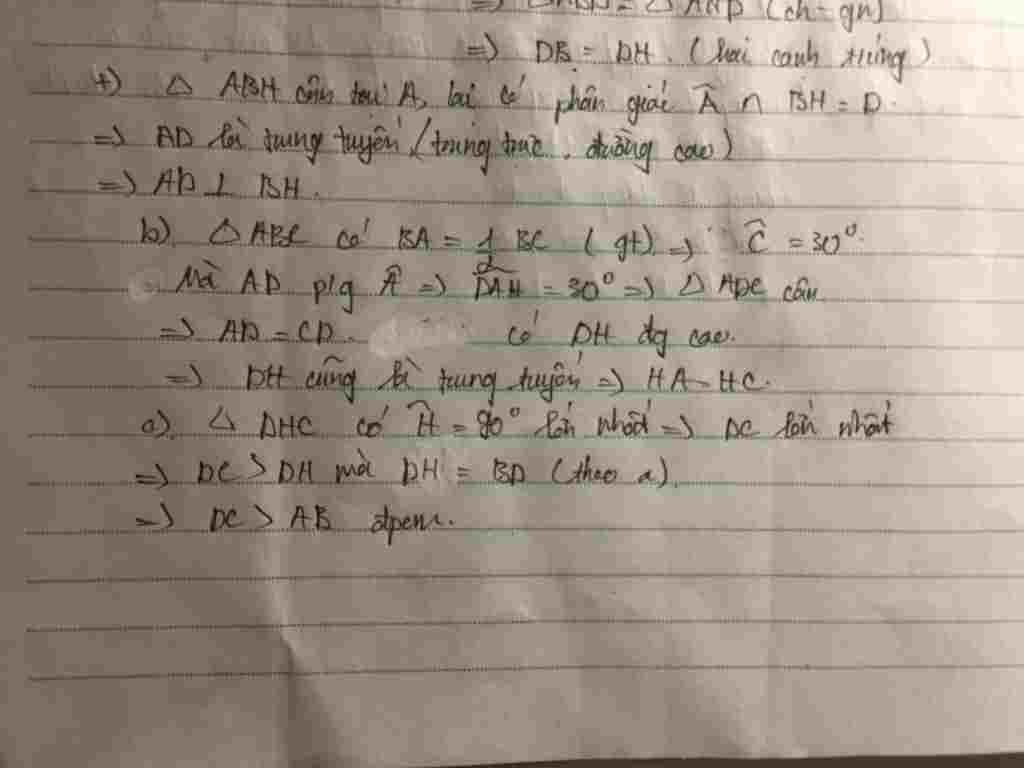 => Δ ABD = Δ AHD (ch - gn)
=> DB = DH. (hai cạnh tướng)
+) Δ ABH cân tại A, lại có phân giác Â ∩ BH = D.
=> AD là trung tuyến (trung trực, đường cao)
=> AD ⊥ BH.
b) Δ ABC có BA = 1/2 BC (gt) => Ĉ = 30°.
Mà AD p/g Â => DAH = 30° => Δ ADC cân
=> AD = CD. có DH đg cao.
=> DH cũng là trung tuyến => HA = HC.
a) Δ DHC có Ĥ = 90° lớn nhất => DC lớn nhất
=> DC > DH mà DH = BD (theo a).
=> DC > AB đpcm.